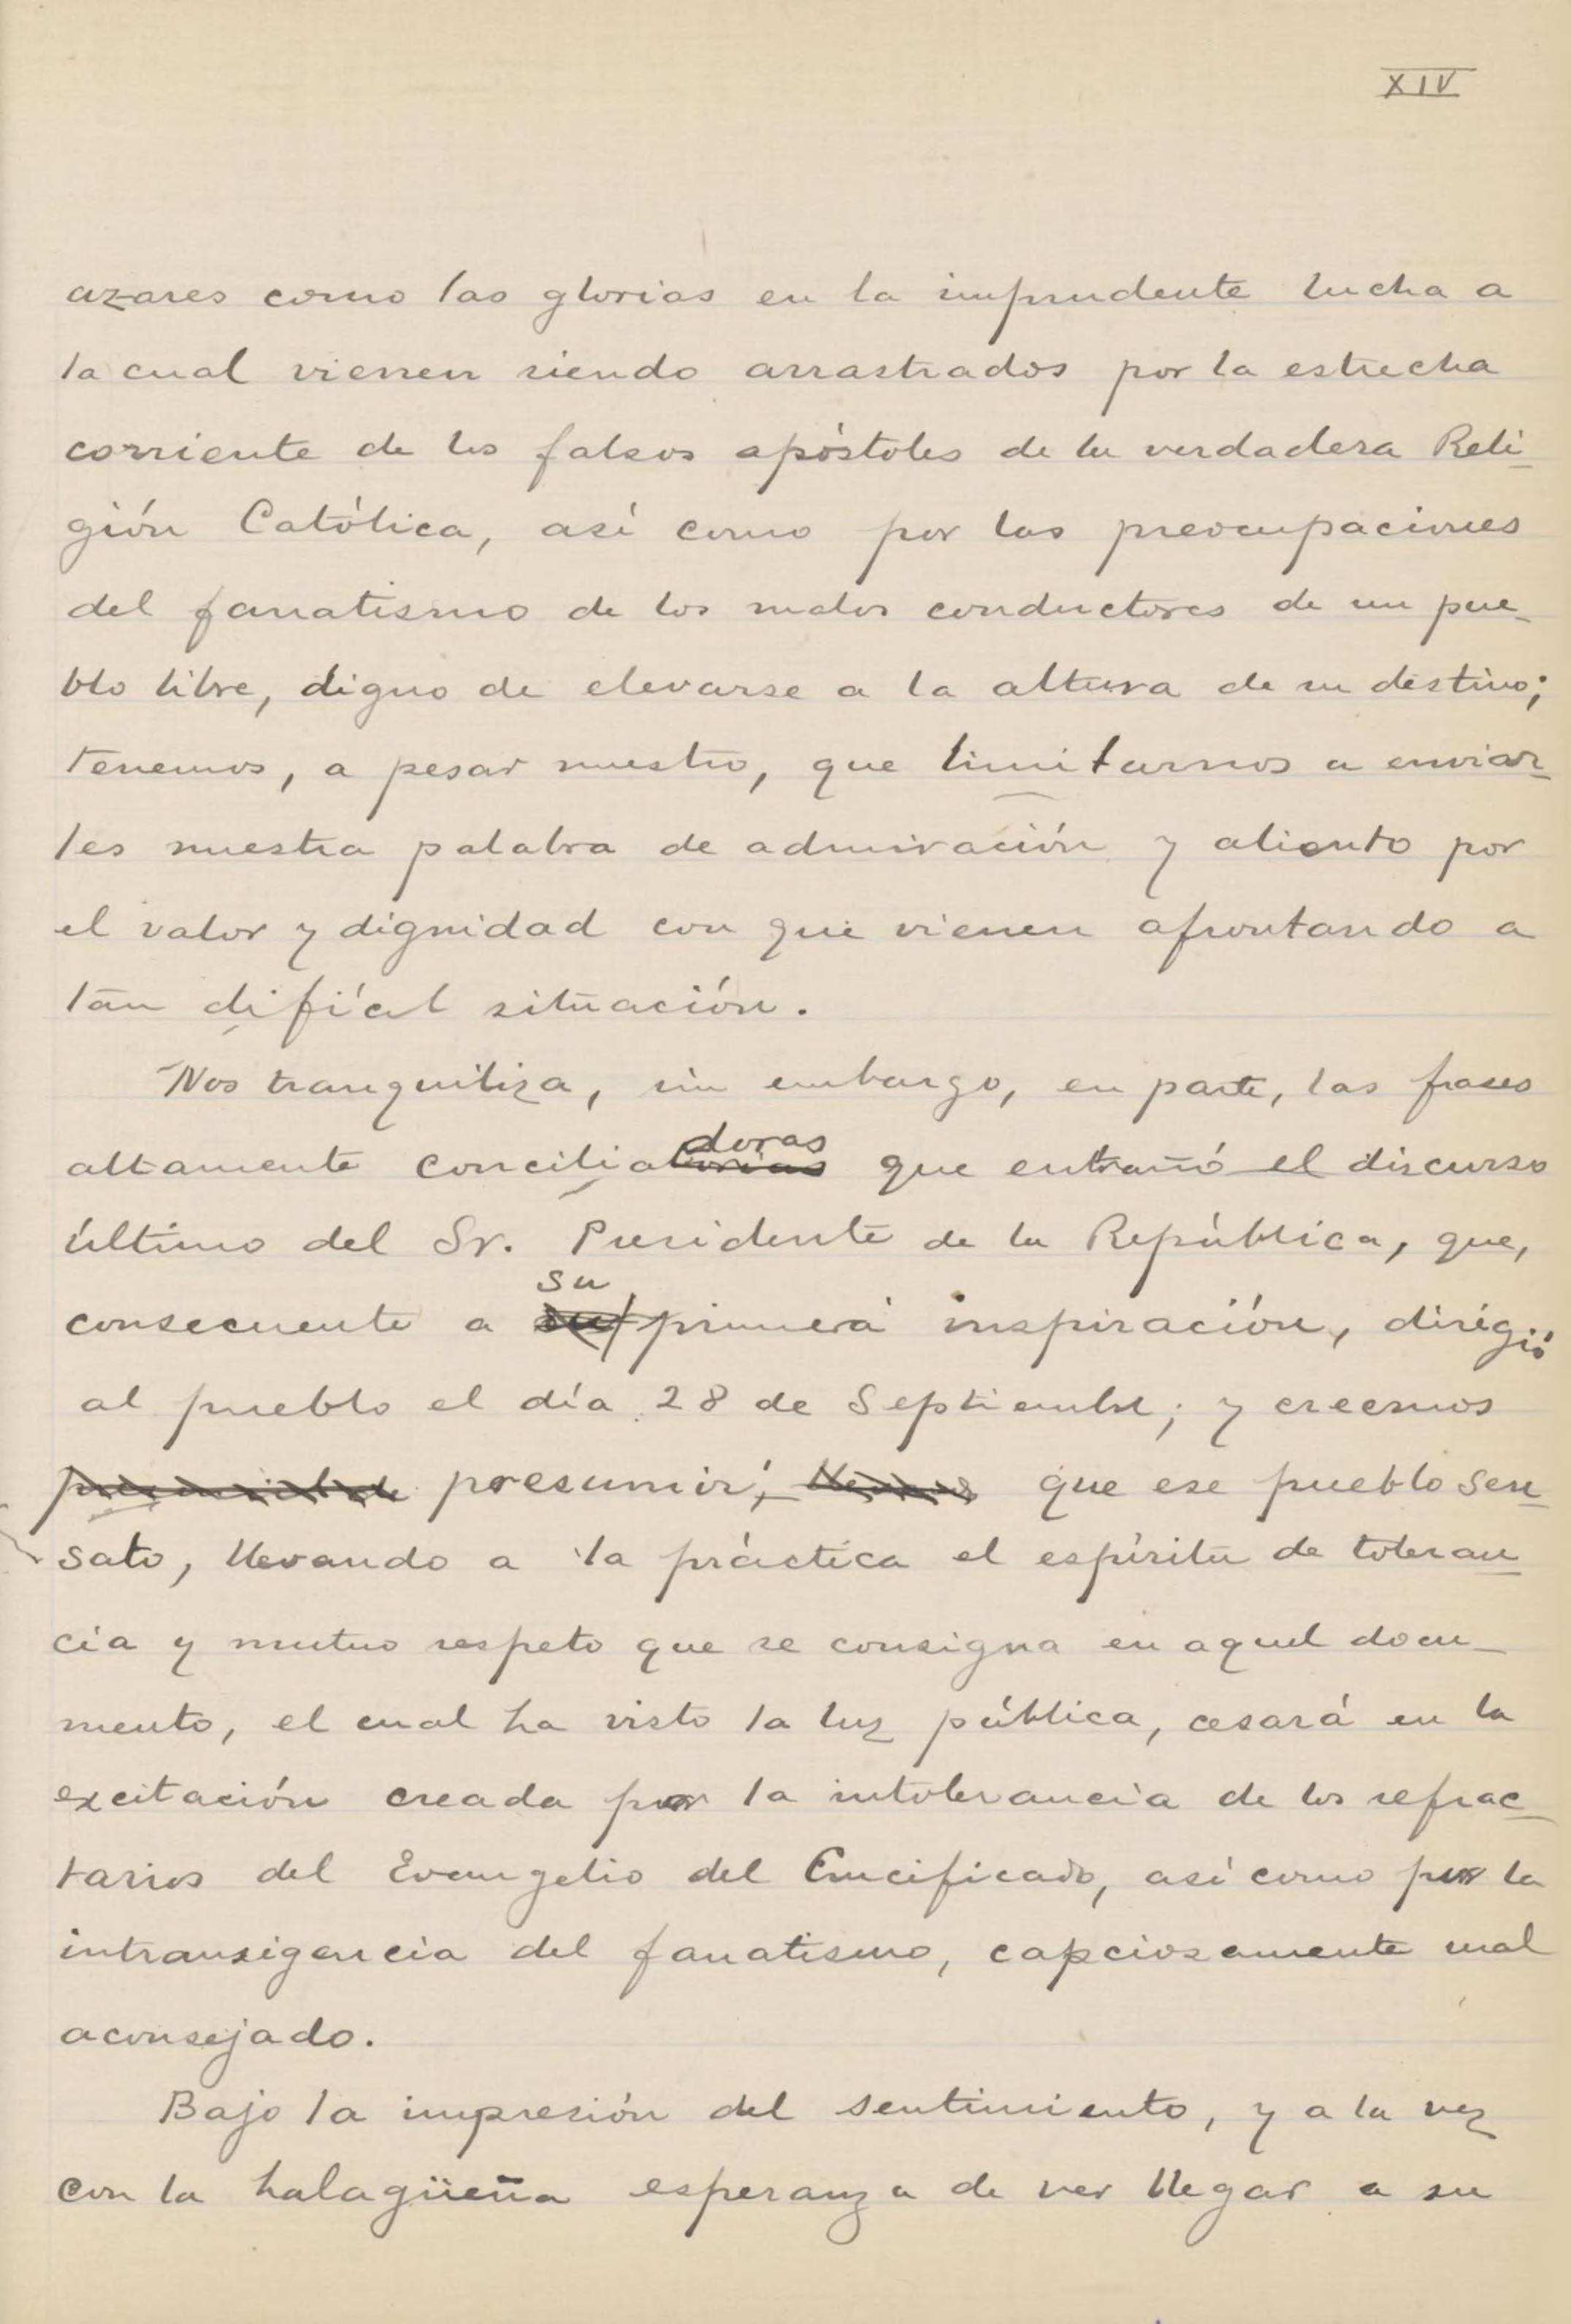 XIV
azares como las glorias en la imprudente lucha a
la cual vienen siendo arrastrados por la estrecha
corriente de los falsos apóstoles de la verdadera Reli-
gión Católica, así como por las preocupaciones
del fanatismo de los malos conductores de un pue-
blo libre, digno de elevarse a la altura de su destino;
tenemos, a pesar nuestro, que limitarnos a enviar-
les nuestra palabra de admiración y aliento por
el valor y dignidad con que vienen afrontando a
tan difícil situación.
Nos tranquiliza, sin embargo, en parte, las frases
altamente conciliadoras que entrañó el discurso
último del Sr. Presidente de la República, que,
consecuente a su primera inspiración, dirigió
al pueblo el día 28 de Septiembre; y creemos
presumir, que ese pueblo sen-
sato, llevando a la práctica el espíritu de toleran-
cia y mutuo respeto que se consigna en aquel docu-
mento, el cual ha visto la luz pública, cesará en la
excitación creada por la intolerancia de los refrac-
tarios del Evangelio del Crucificado, así como por la
intransigencia del fanatismo, capciosamente mal
aconsejado.
Bajo la impresión del sentimiento, y a la vez
con la halagüeña esperanza de ver llegar a su